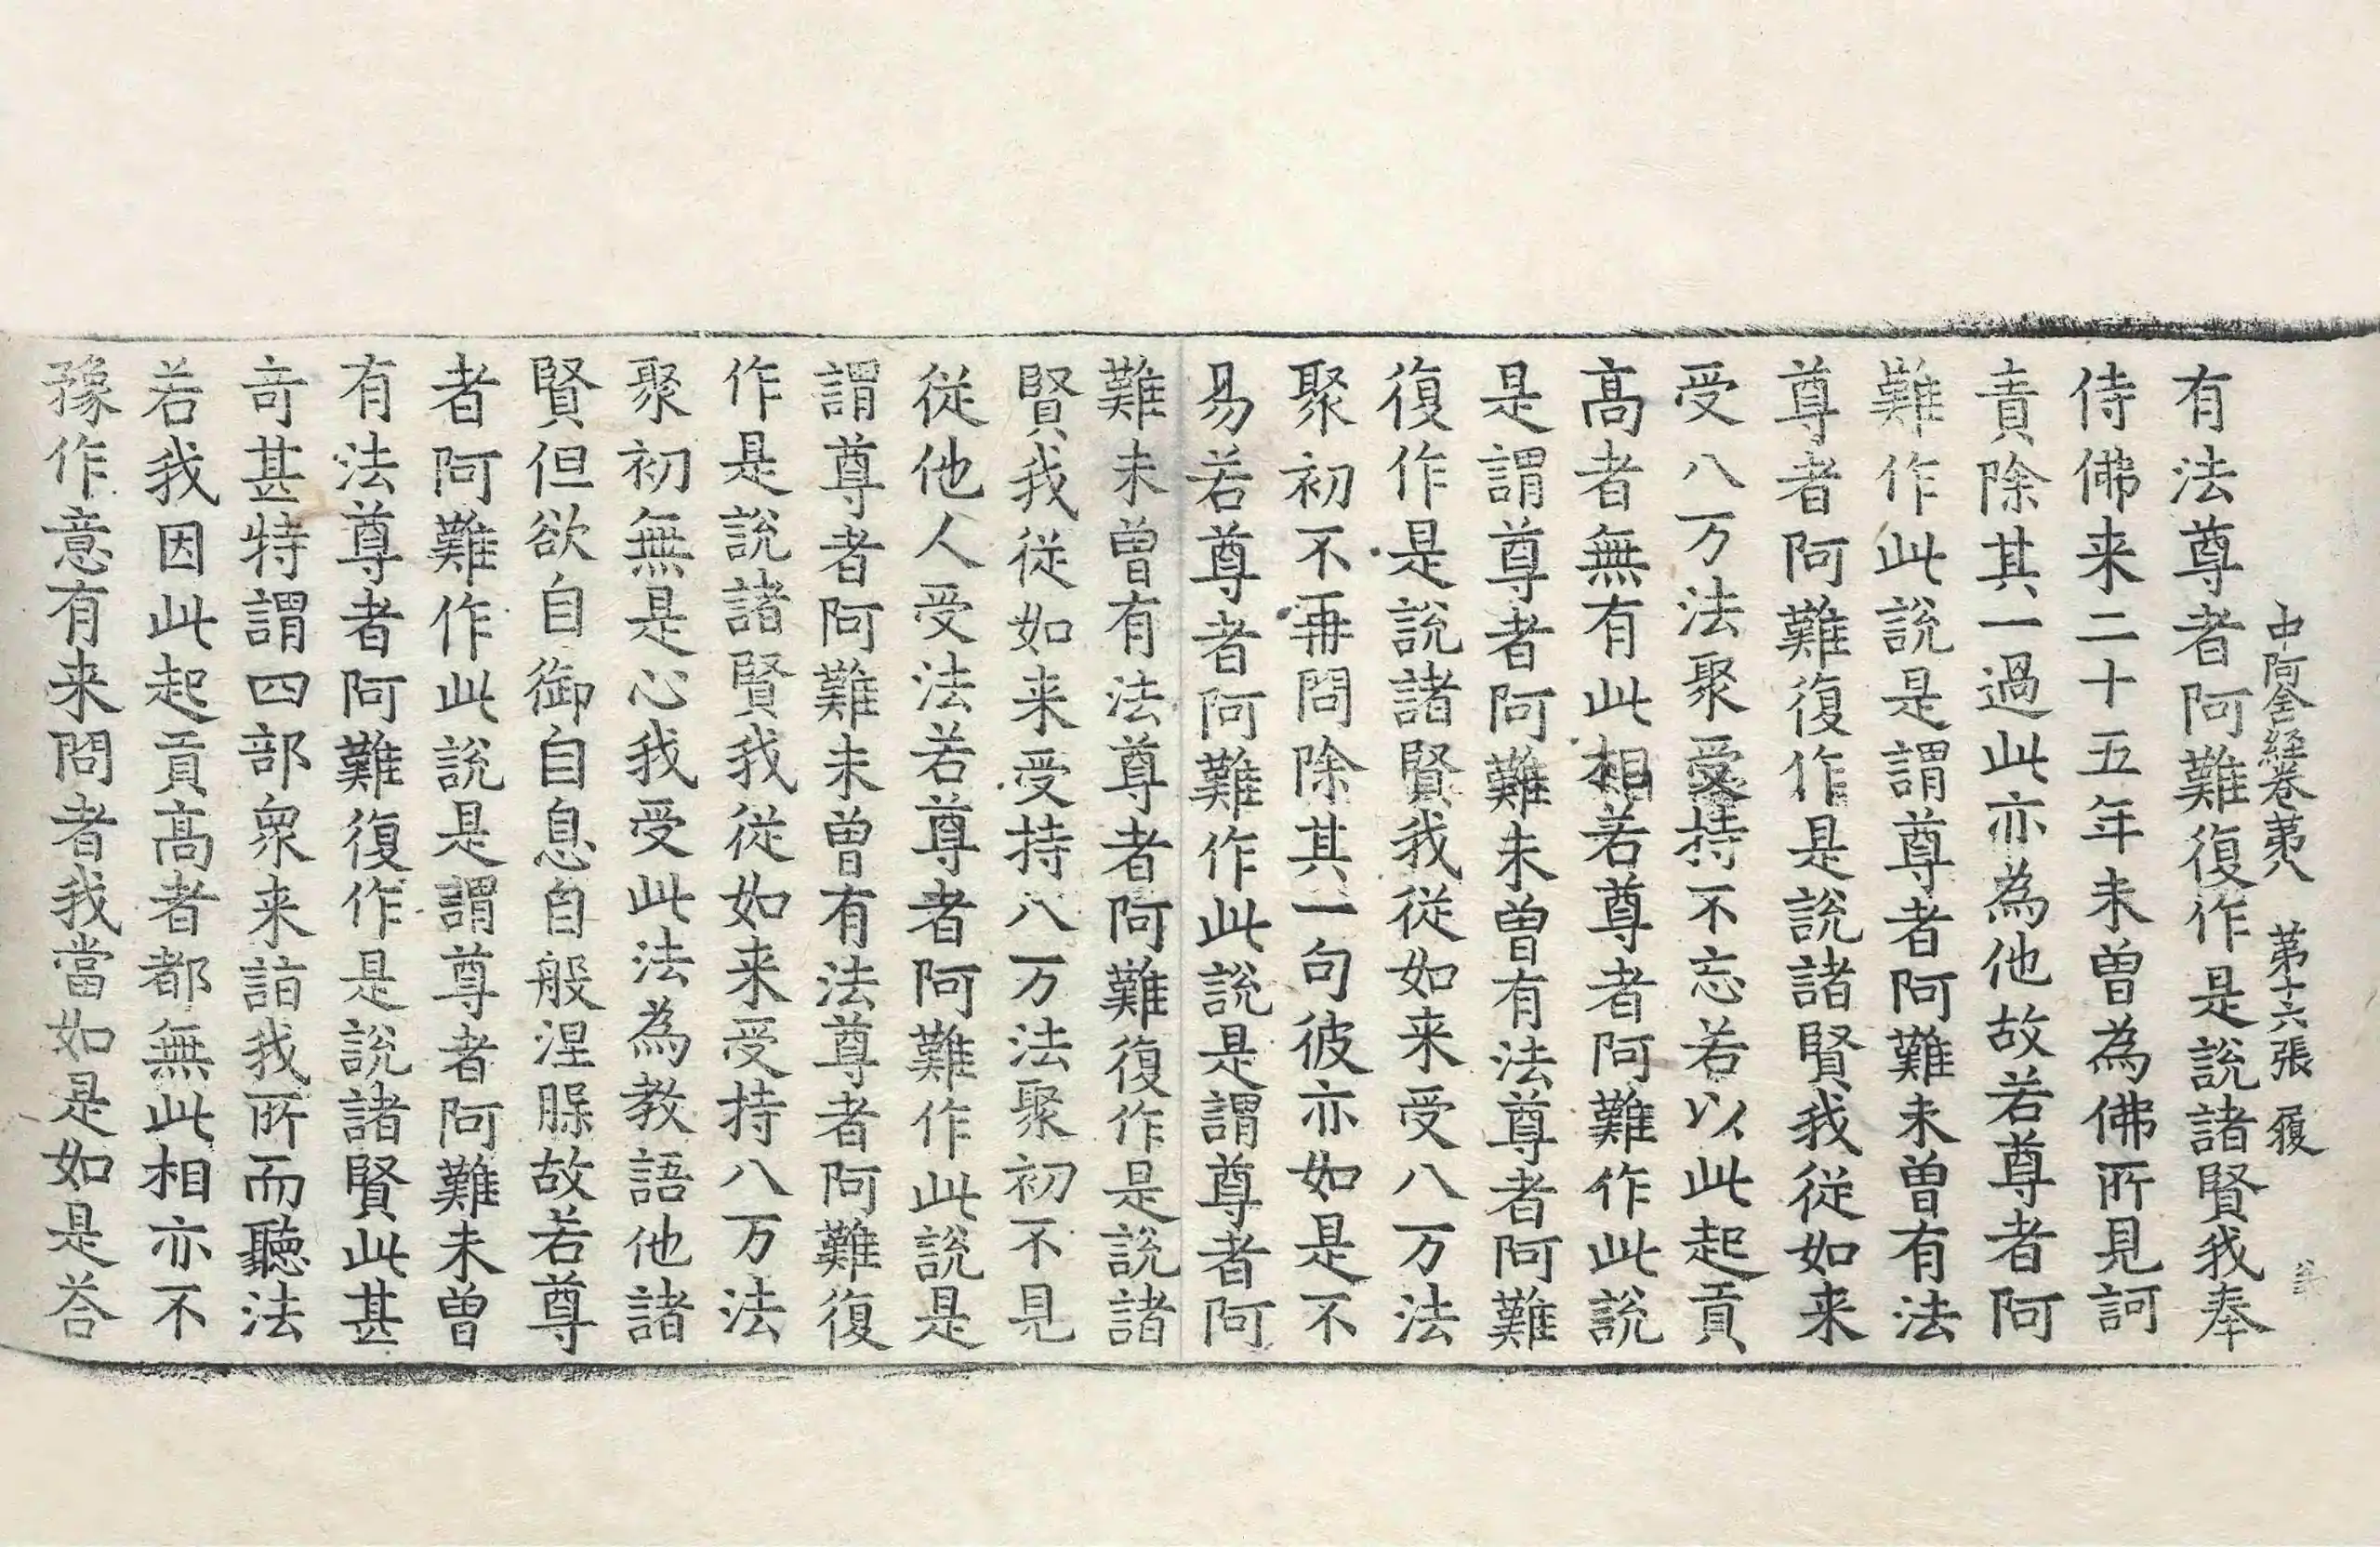 中阿含経卷苐八　苐十六張　履
有法尊者阿難復作是說諸賢我奉
侍佛来二十五年未曽為佛所見訶
責除其一過此亦為他故若尊者阿
難作此說是謂尊者阿難未曽有法
尊者阿難復作是說諸賢我従如来
受八万法聚受持不忘若以此起貢
髙者無有此相若尊者阿難作此說
是謂尊者阿難未曽有法尊者阿難
復作是說諸賢我従如来受八万法
聚初不再問除其一句彼亦如是不
易若尊者阿難作此說是謂尊者阿
難未曽有法尊者阿難復作是說諸
賢我従如来受持八万法聚初不見
従他人受法若尊者阿難作此說是
謂尊者阿難未曽有法尊者阿難復
作是說諸賢我従如来受持八万法
聚初無是心我受此法為教語他諸
賢但欲自御自息自般涅槃故若尊
者阿難作此說是謂尊者阿難未曽
有法尊者阿難復作是說諸賢此甚
竒甚特謂四部衆来詣我所而聽法
若我因此起貢髙者都無此相亦不
豫作意有来問者我當如是如是荅